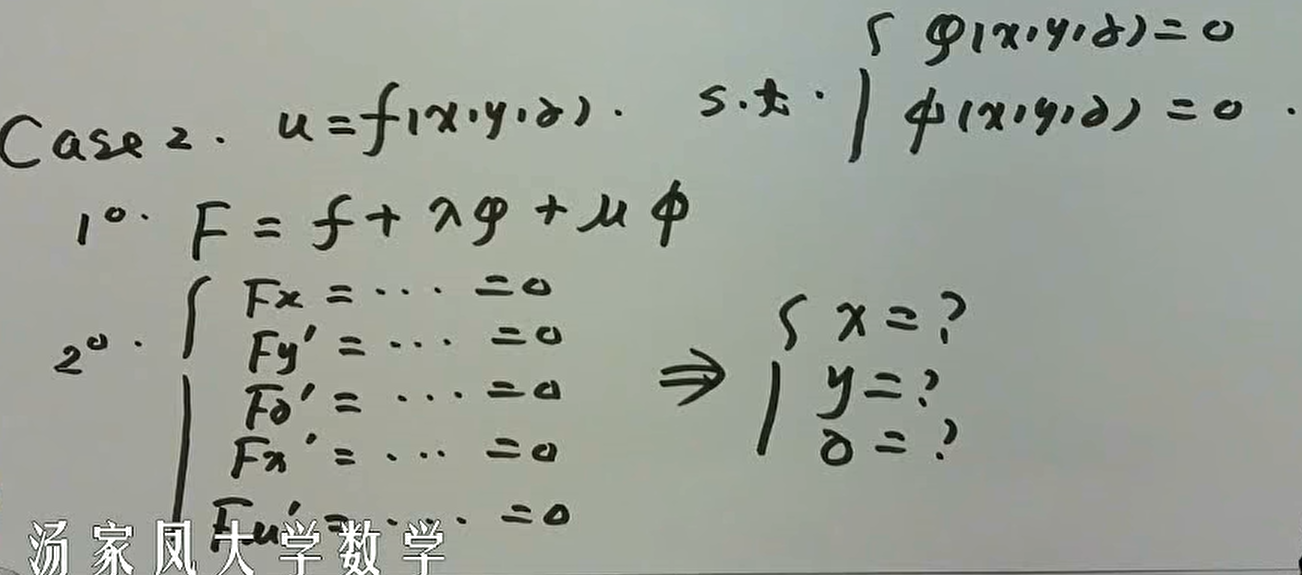 Case 2. u=f(x,y,z). s.t. { φ(x,y,z)=0
ϕ(x,y,z)=0.
1°. F = f + λφ + μϕ
2°. { Fx = ··· =0
Fy' = ··· =0
Fz' = ··· =0
Fλ' = ··· =0
Fu' = ··· =0
⇒ { x=?
y=?
z=?
汤家凤大学数学